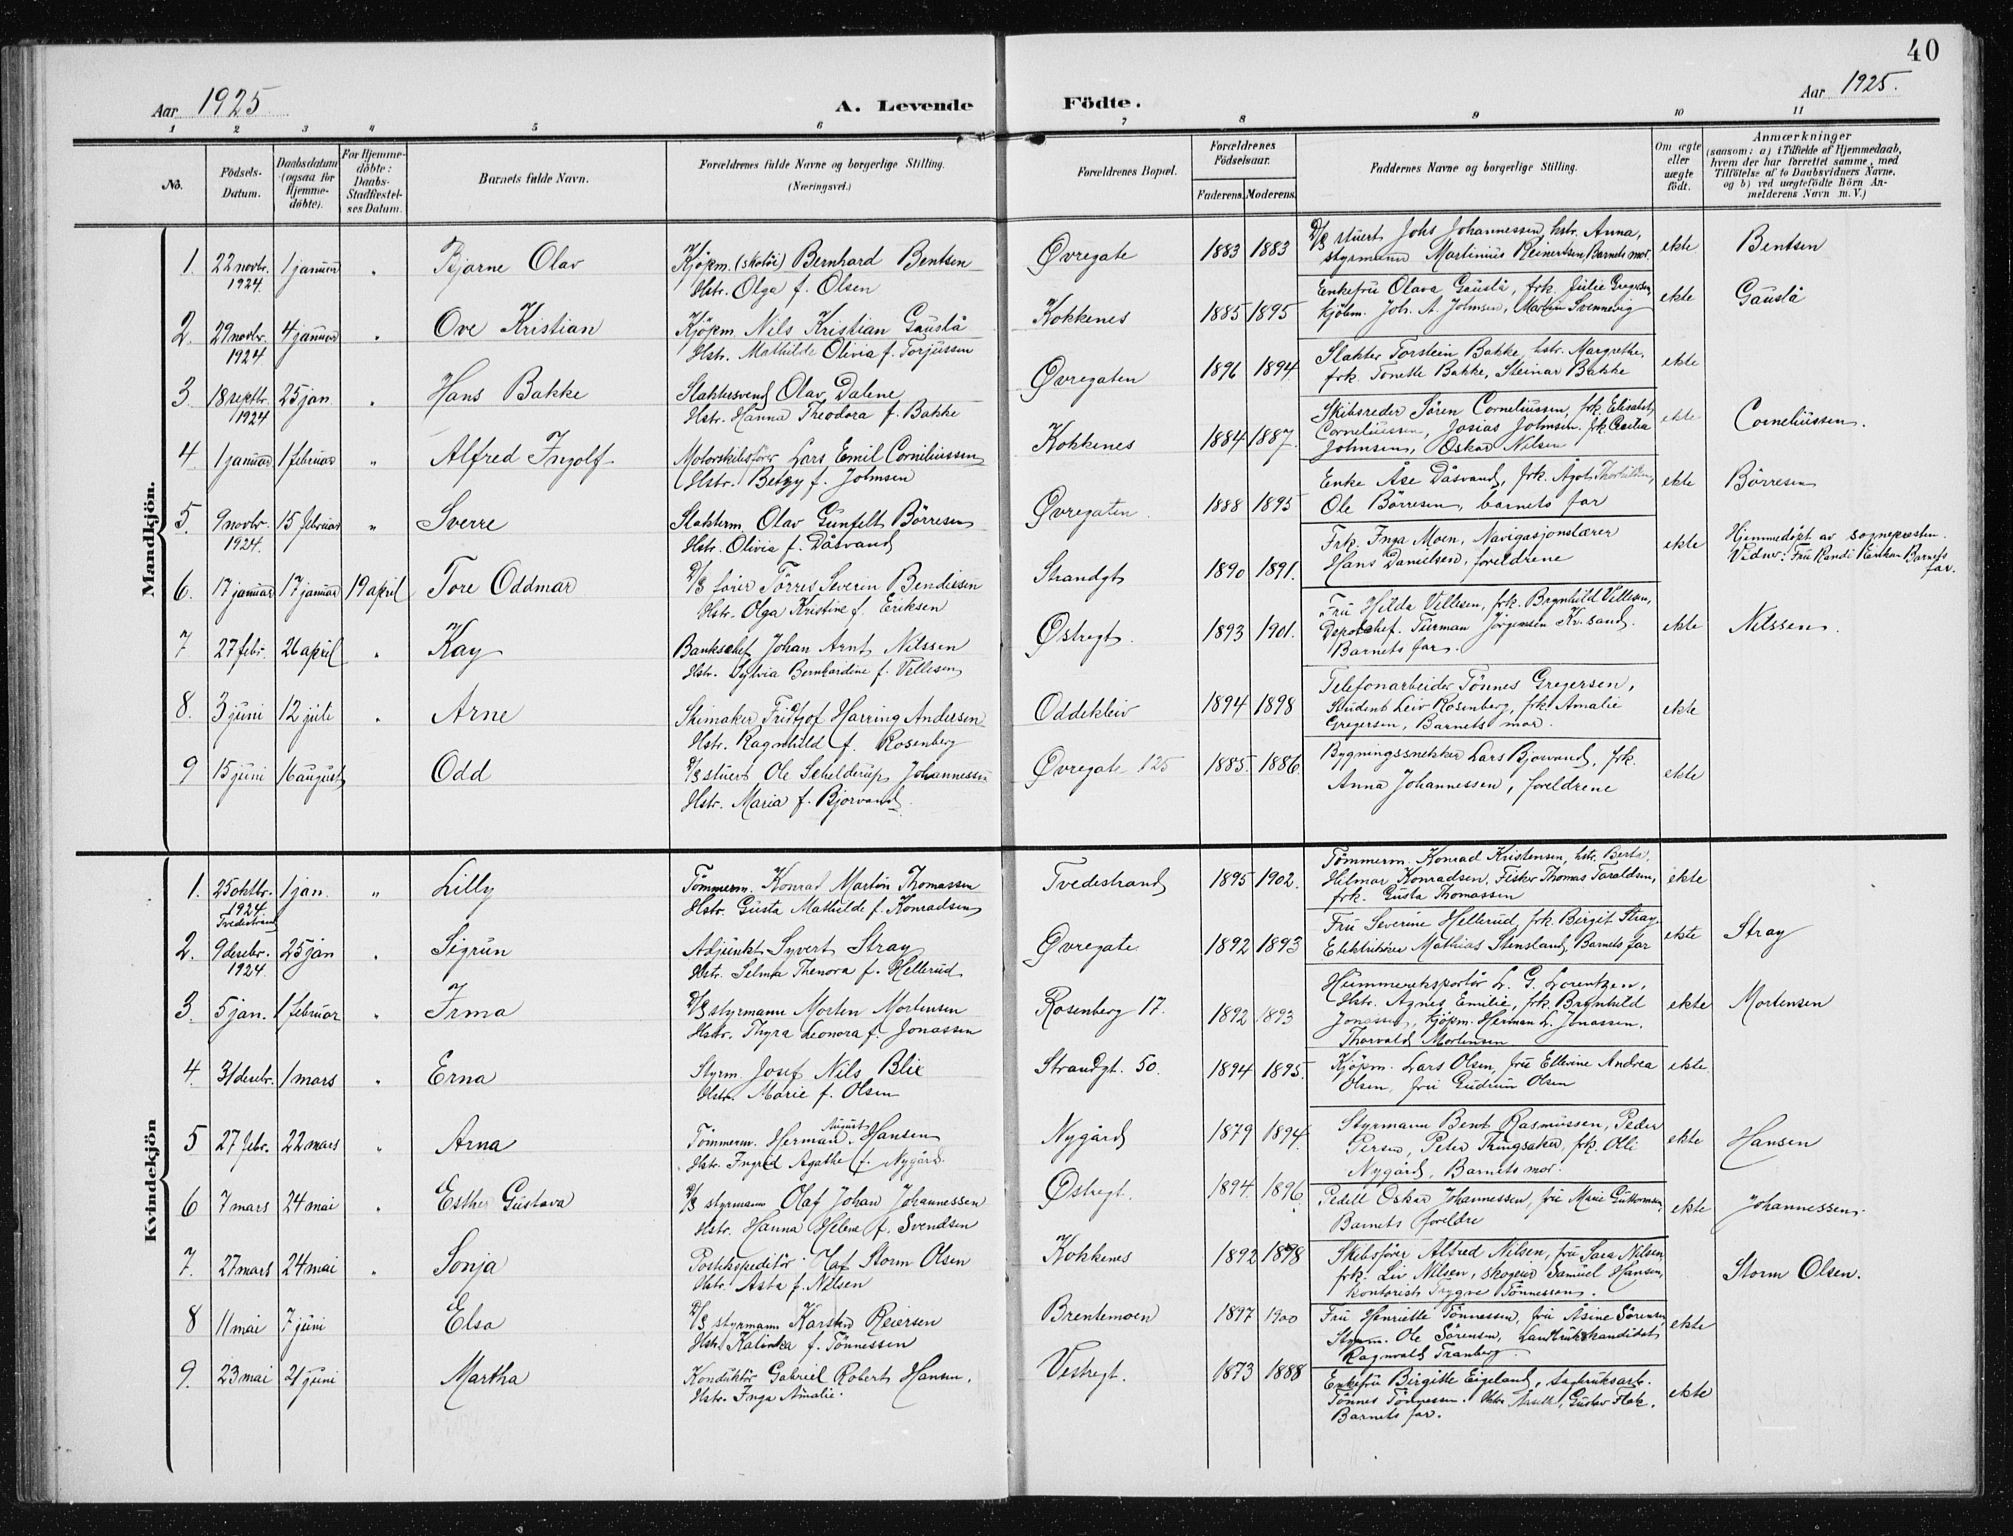 40
Aar 1925
A. Levende Födte.
Aar 1925.
1 2 3 4 5 6 7 8 9 10 11
No.
Födsels-Datum.
Daabsdatum (ogsaa for Hjemme-döbte).
For Hjemme-döbte: Daabs-Stadfæstel-ses Datum.
Barnets fulde Navn.
Forældrenes fulde Navne og borgerlige Stilling. (Næringsvei.)
Forældrenes Bopæl.
Forældrenes Födselsaar.
Faderens. Moderens.
Faddernes Navne og borgerlige Stilling.
Om ægte eller uægte födt.
Anmærkninger (saasom: a) i Tilfælde af Hjemmedaab, hvem der har forrettet samme, med Tilföielse af to Daabsvidners Navne, og b) ved uægtefödte Börn An-melderens Navn m. V.)
Mandkjön.
1. 22 novbr. 1924. 1 januar " Bjarne Olav
Kjöpm. (skotöi) Bernhard Bentsen
Hstr. Olga f. Olsen
Øvregate 1883 1883
D/S stuert Johs Johannessen, hstr. Anna,
styrmann Martinius Reinertsen, Barnets mor.
ekte Bentsen
2. 29 novbr. 1924 4 januar " Ove Kristian
Kjöpm. Nils Kristian Gauslå
Hstr. Mathilde Olivia f. Torjussen
Kokkenes 1885 1895
Enkefru Olava Gauslå, frk. Julie Gregersen,
kjöbm. Joh. A. Johnsen, Martin Svennevig
ekte Gauslå
3 18 septbr. 1924 25 jan. " Hans Bakke
Slaktersvend Olav Dalene
Hstr. Hanna Theodora f. Bakke
Øvregaten 1896 1894
Slakter Torstein Bakke, hstr. Margrethe,
frk. Tonette Bakke, Steinar Bakke
ekte
4 1 januar 1 februar " Alfred Ingolf
Motorskibsförer Lars Emil Corneliussen
Hstr. Betzy f. Johnsen
Kokkenes 1884 1887.
Skibsreder Sören Corneliussen, frk. Elisabet
Corneliussen, Josias Johnsen, frk. Cecilia
Johnsen, Oskar Nilsen
ekte Corneliussen.
5. 9 novbr. 1924. 15 februar " Sverre
Slakterm. Olav Gunfelt Börresen
Hstr. Olivia f. Dåsvand
Øvregaten. 1888 1895
Enke Åse Dåsvand, frk. Ågot
Ole Börresen, barnets far
ekte Börresen
6. 17 januar 17 januar 19 april Tore Oddmar
D/S förer Törres Severin Bendixsen
Hstr. Olga Kristine f. Eriksen
Strandgt 1890 1891.
Frk. Inga Moen, Navigasjonslærer
Hans Danielsen, foreldrene
ekte Hjemmedöpt av sogneprosten.
Vidner: Fru Randi Barnets far.
7 27 febr. 26 april " Kay
Bankschef Johan Arnt Nilssen
Hstr. Sylvia Bernhardine f. Vellesen
Østregt. 1893 1901.
Fru Hilda Vellesen, frk. Brynhild Vellesen,
Depotchef. Turman Jörgensen Kr.sand.
Barnets far.
ekte Nilssen.
8. 3 juni 12 juli " Arne
Skimaker Fridtjof Harring Andersen
Hstr. Ragnhild f. Rosenberg
Oddekleiv 1894 1898
Telefonarbeider Tönnes Gregersen,
Student Leiv Rosenberg, frk. Amalie
Gregersen, Barnets mor.
ekte
9 15 juni 16 august Odd
D/S stuert Ole Schelderup Johannessen
Hstr. Maria f. Bjorvand.
Øvregate 125 1885. 1886.
Bygningssnekker Lars Bjorvand, frk.
Anna Johannessen, foreldrene
ekte
Kvindekjön
1. 25 oktbr. 1924 Tvedestrand 1 jan. " Lilly
Tömmerm. Konrad Martin Thomassen
Hstr. Gusta Mathilde f. Konradsen
Tvedestrand 1895 1902.
Tömmerm. Konrad Kristensen, hstr. Berta,
Hilmar Konradsen, Fisker Thomas Taraldsen,
frk. Gusta Thomassen
ekte
2. 9 desebr. 1924. 25 jan " Sigrun
Adjunkt Syvert Stray
Hstr. Selma Thenora f. Hellerud
Øvregate 1892 1893
Fru Severine Hellerud, frk. Birgit Stray
Elektriker Mathias Stensland, Barnets far
ekte Stray
3. 5 jan. 1 februar " Irma
D/S styrmann Morten Mortensen
Hstr. Thyra Leonora f. Jonassen
Rosenberg 17. 1892 1893
Hummereksportör L. G. Lorentzen,
Hstr. Agnes Emilie, frk. Brynhild
Jonassen, kjöpm. Herman L. Jonassen,
Thorvald Mortensen
ekte Mortensen
4. 31 desebr. 1 mars " Erna
Styrm. Josef Nils Blix
Hstr. Marie f. Olsen
Strandgt. 50. 1894 1895.
Kjöpm. Lars Olsen, fru Ellevine Andrea
Olsen, fru Gudrun Olsen
ekte.
5 27 febr. 22 mars " Arna
Tömmerm. Herman August Hansen
Hstr. Ingrid Agathe f. Nygård.
Nygård 1879 1894.
Styrmann Bent Rasmussen, Peder
Persen, Peter, frk. Olli
Nygård, Barnets mor.
ekte Hansen
6 7 mars 24 mai " Esther Gustava
D/S styrmann Olaf Johan Johannessen
Hstr. Hanna Helene f. Svendsen
Østregt. 1894. 1896.
Pedell Oskar Johannessen, fru Marie Guttormsen,
Barnets foreldre
ekte Johannessen.
7. 27 mars 24 mai " Sonja
Postekspeditör Olaf Storm Olsen
Hstr. Asta f. Nilsen
Kokkenes 1892 1898
Skibsförer Alfred Nilsen, fru Sara Nilsen,
frk. Liv Nilsen, skogeier Samuel Hansen,
kontorist Trygve Tönnessen.
Storm Olsen.
8 11 mai 7 juni Elsa
D/S styrmann Karsten Reiersen
Hstr. Kalinka f. Tönnessen
Brentemoen 1897 1900
Fru Henriette Tönnessen, fru Åsine Sörensen,
Styrm. Ole Sörensen, Landbrukskandidat
Ragnvald Tranberg.
ekte
9. 23 mai 21 juni Martha
Konduktör Gabriel Robert Hansen.
Hstr. Inga Amalie.
Vestregt. 1873 1888
Enkefru Birgitte Eigeland, sagbruksarb.
Tönnes Tönnessen, Gustav Flak,
Barnets far.
ekte